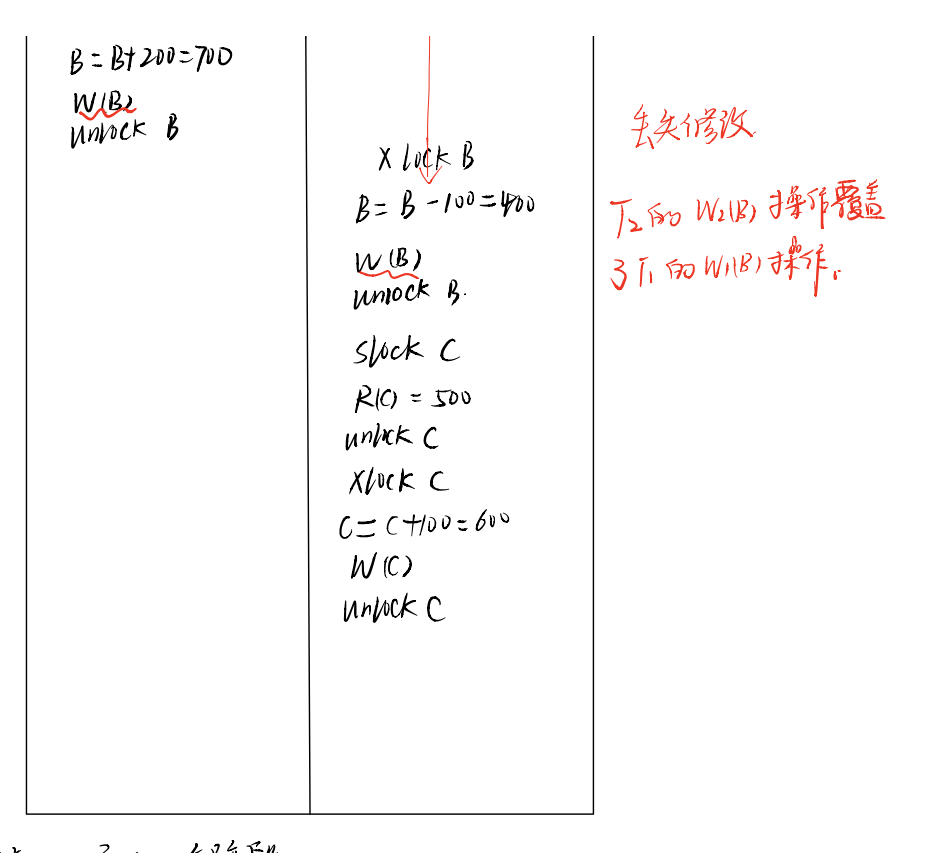 B = B+200=700
W(B)
unlock B
X lock B
B = B - 100 = 400
W(B)
unlock B.
Slock C
R(C) = 500
unlock C
Xlock C
C = C+100=600
W(C)
unlock C
丢失修改
T2的 W2(B) 操作覆盖
了T1的 W1(B) 操作.